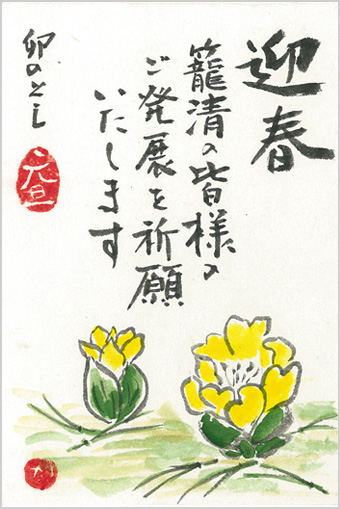 迎春
籠清の皆様の
ご発展を祈願
いたします
卯のとし
元旦